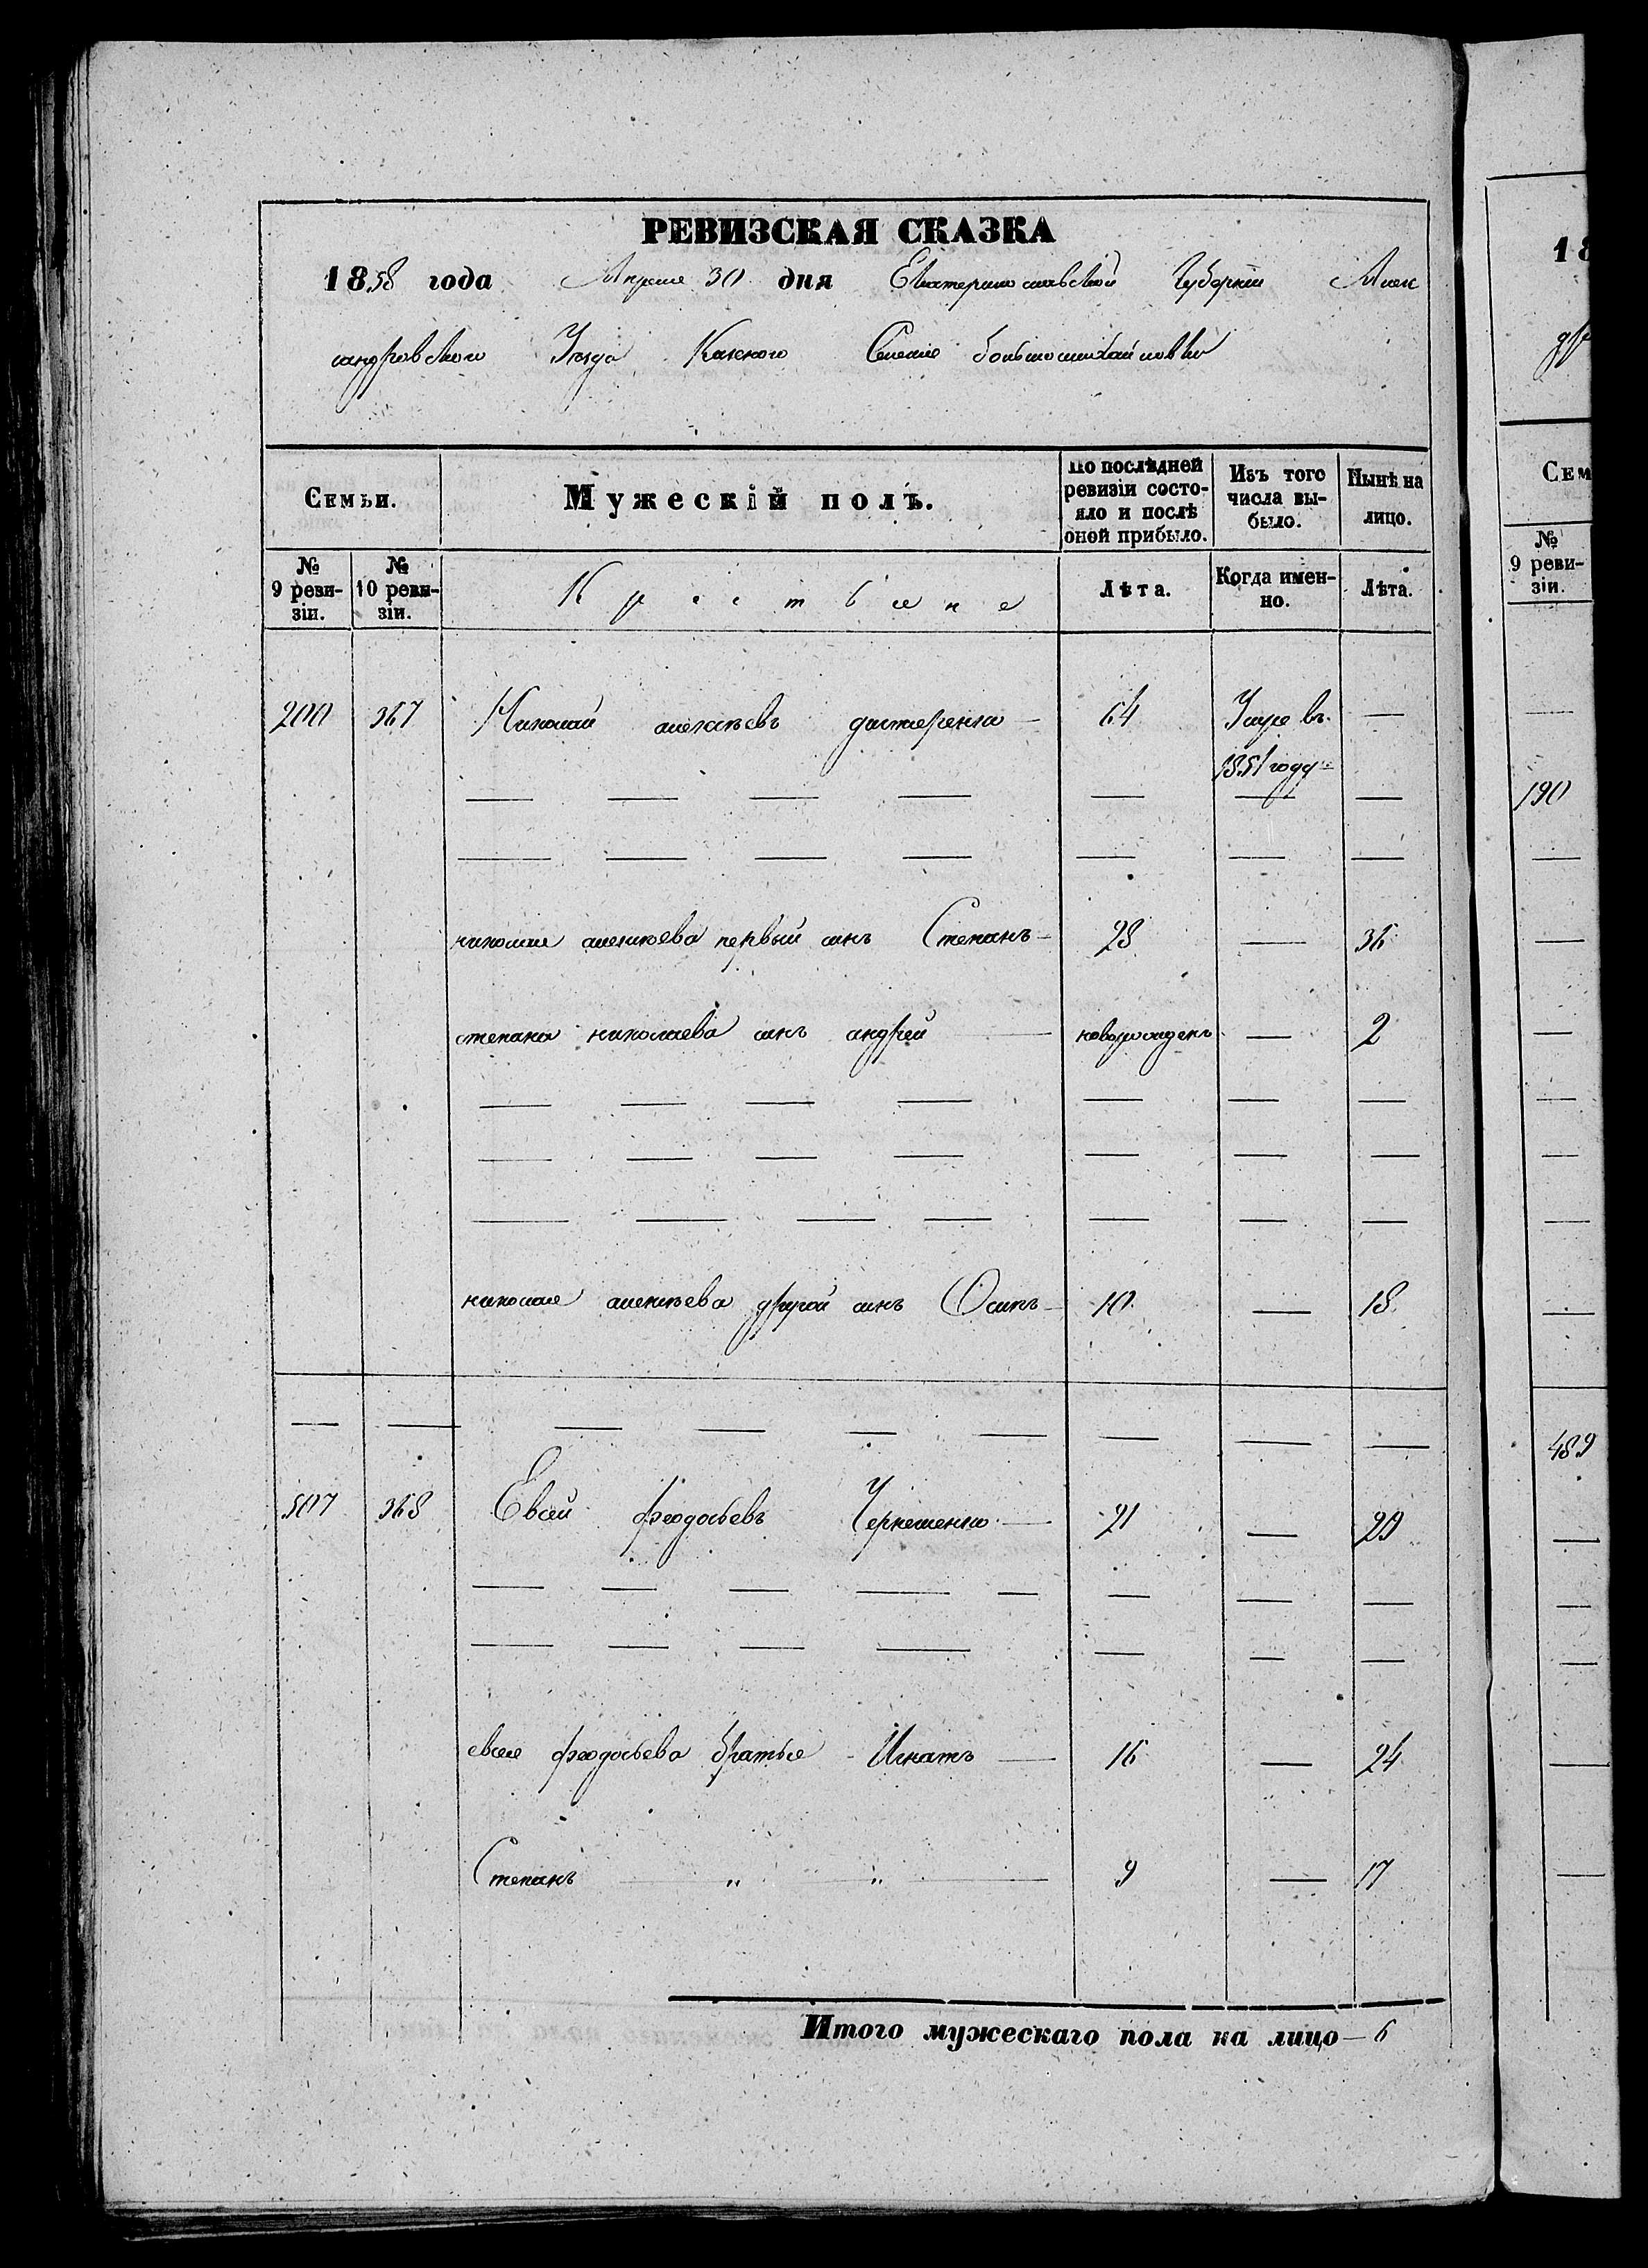 РЕВИЗСКАЯ СКАЗКА
1858 года Апреля 30 дня Екатеринославской Губерніи Алек
сандровскаго Уезда Казеного Селенія большомихайловки
Семьи. Мужескій полъ. По послѣдней ревизіи состояло и послѣ оной прибыло. Изъ того числа выбыло. Нынѣ на лицо.
№ 9 ревизіи. № 10 ревизіи. Крестьяне Лѣта. Когда именно. Лѣта.
200 367 Николай алексѣевъ 64 Умре въ —
1851 году
николая алексѣева первый сынъ Степанъ — 28 — 36
степана николаева сынъ андрей — новорожденъ — 2
николая алексѣева другой сынъ Осипъ — 10 — 18
507 368 Евсей феодосьевъ 21 — 29
евсея феодосьева братья Игнатъ — 16 — 24
Степанъ — „ — „ — 9 — 17
Итого мужескаго пола на лицо — 6
18
Сем
№
9 реви-
зіи.
190
489